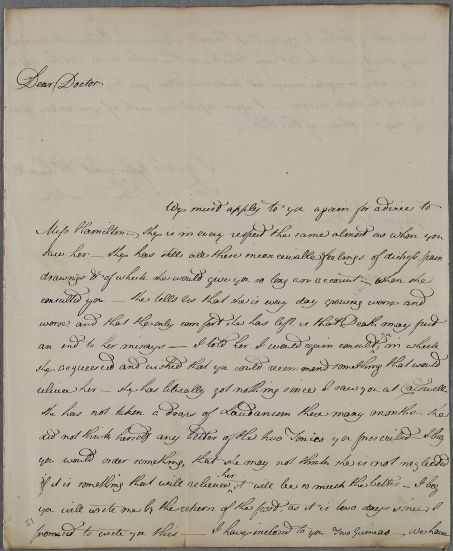 Dear Doctor
We must apply to you again for advice to
Miss Hamilton — She is in every respect the same almost as when you
saw her — She has still all those inconceivable feelings of distress, pain
drawings &c of which she would give you so long an account, when she
consulted you — She tells us that she is every day growing worse and
worse and that the only comfort she has left is that Death may put
an end to her miserys — I told her I would again consult you, in which
she acquiesced and wished that you could recommend something that would
relieve her — She has literally got nothing since I saw you at Caldwell
She has not taken a drop of Laudanum these many months — she
did not think herself any better of the two Tonics you prescribed — I beg
you would order something, that she may not think she is not neglected
if it is something that will relieve her, it will be so much the better — I beg
you will write me by the return of the post, as it is two days since I
promised to write you this — I have inclosed to you two Guineas — We have